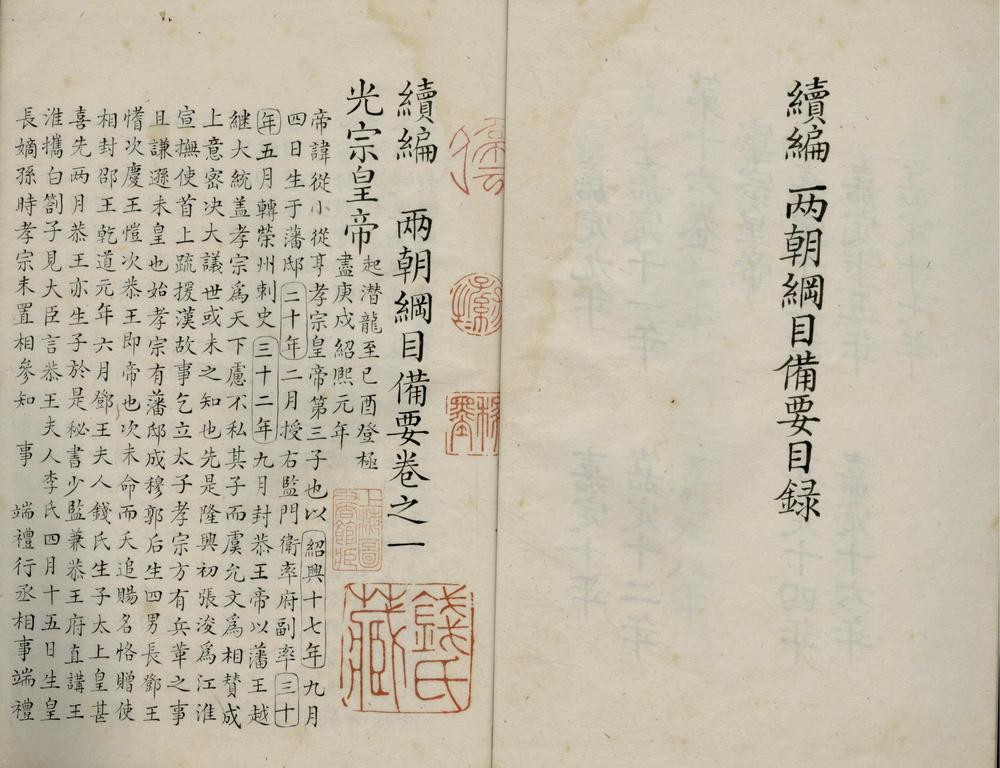 續編 两朝綱目備要目録
續編 兩朝綱目備要卷之一
光宗皇帝
起潛龍至己酉登極
盡庚戌紹熙元年
帝諱從小從享孝宗皇帝第三子也以紹興十七年九月
四日生于藩邸二十年二月授右監門衛率府副率三十
年五月轉榮州刺史三十二年九月封恭王帝以藩王越
継大統盖孝宗爲天下慮不私其子而虞允文爲相賛成
上意密决大議世或未之知也先是隆興初張浚爲江淮
宣撫使首上䟽援漢故事乞立太子孝宗方有兵革之事
且謙遜未皇也始孝宗有藩邸成穆郭后生四男長鄧王
愭次慶王愷次恭王即帝也次未命而夭追賜名恪贈使
相封邵王乾道元年六月鄧王夫人錢氏生子太上皇甚
喜先两月恭王亦生子於是秘書少監兼恭王府直講王
淮攜白劄子見大臣言恭王夫人李氏四月十五日生皇
長嫡孫時孝宗未置相參知 事 端禮行丞相事端禮
錢氏
藏
上海圖
書館藏